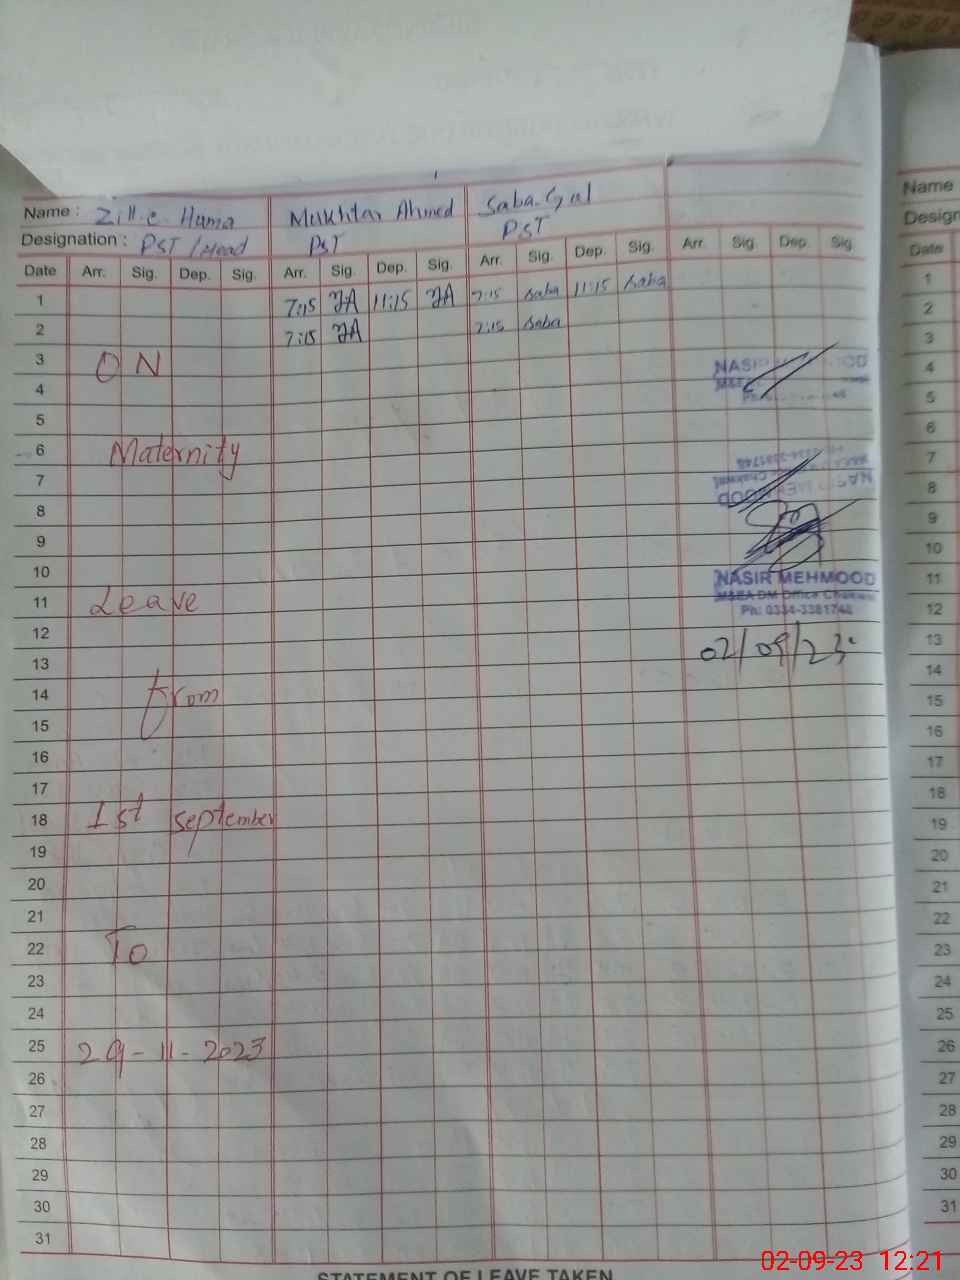 Name : Zill-e-Huma Mukhtar Ahmed Saba Gul
Designation : PST / Head PST PST
Date Arr. Sig. Dep. Sig. Arr. Sig. Dep. Sig. Arr. Sig. Dep. Sig. Arr. Sig. Dep. Sig.
1 7:15 11:15 7:15 Saba 11:15 Saba
2 7:15 7:15 Saba
3 ON
4
5
6 Maternity
7
8
9
10
11 Leave
12
13
14 from
15
16
17
18 1st September
19
20
21
22 To
23
24
25 29-11-2023
26
27
28
29
30
31
NASIR MEHMOOD
M&EA DM Office Chakwal
Ph: 0334-3381748
02/09/23
STATEMENT OF LEAVE TAKEN
Name
Design
Date
1
2
3
4
5
6
7
8
9
10
11
12
13
14
15
16
17
18
19
20
21
22
23
24
25
26
27
28
29
30
31
02-09-23 12:21